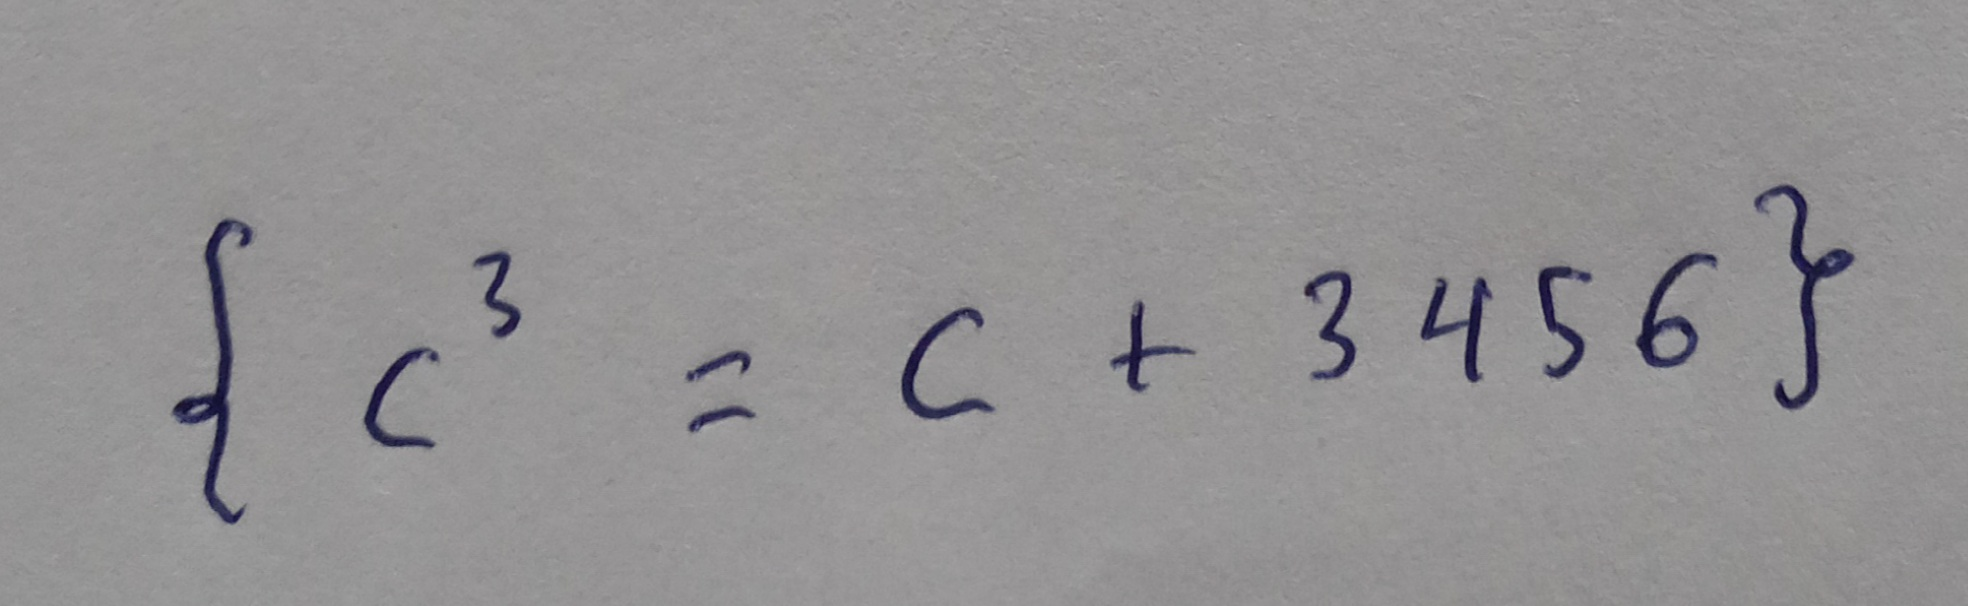 { c³ = c + 3456}